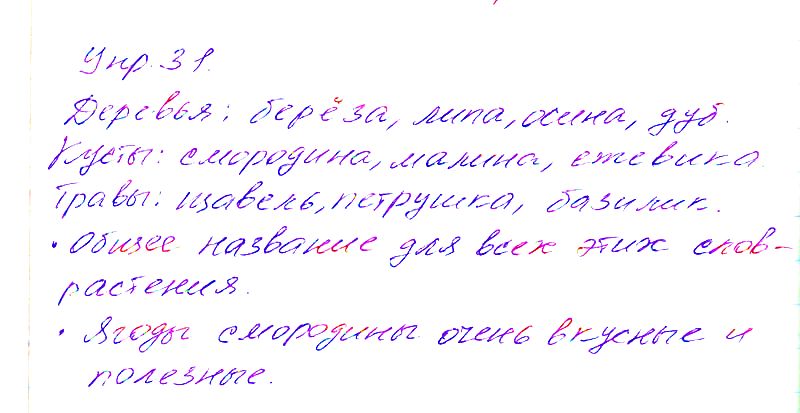 Упр. 31.
Деревья: берёза, липа, осина, дуб.
Кусты: смородина, малина, ежевика
Травы: щавель, петрушка, базилик.
• Общее название для всех этих слов-
растения.
• Ягоды смородины очень вкусные и
полезные.